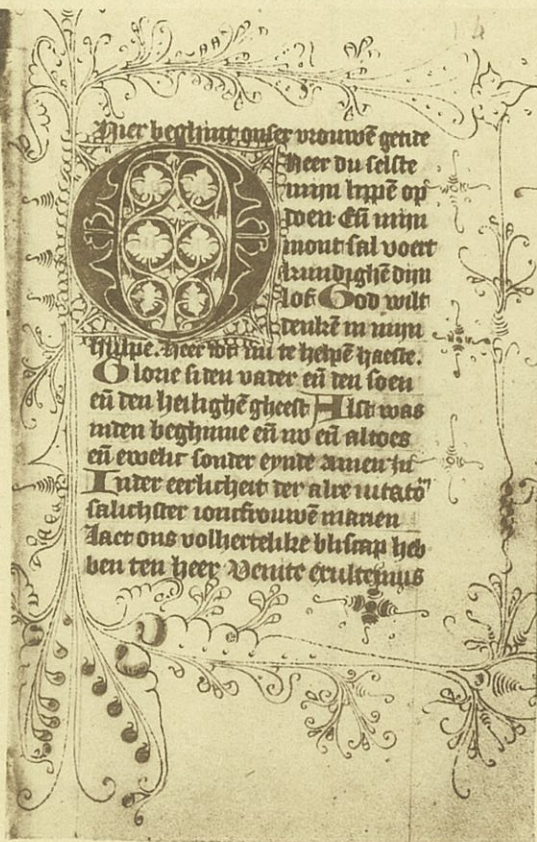 Hier beghint onser vrouwē getide
Heer du selste
mijn lippē op
doen Eñ mijn
mont sal voert
kundighē dijn
lof God wilt
denkē in mijn
hulpe. Heer wilt mi te helpē haeste.
Glorie si den vader eñ den soen
eñ den heilighē gheest Alst was
inden beghinne eñ nv eñ altoes
eñ ewelic sonder eynde amen
Inder eerlicheit der alre
salichster ioncfrouwē marien
laet ons volhertelike bliscap heb
ben ten heer Venite exultemus